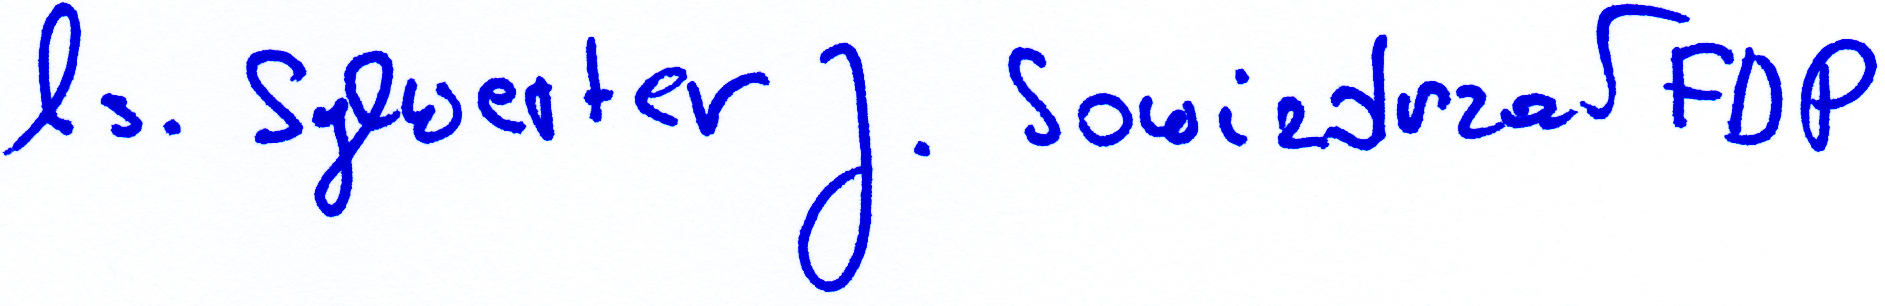 ks. Sylwester J. Sowizdrzał FDP